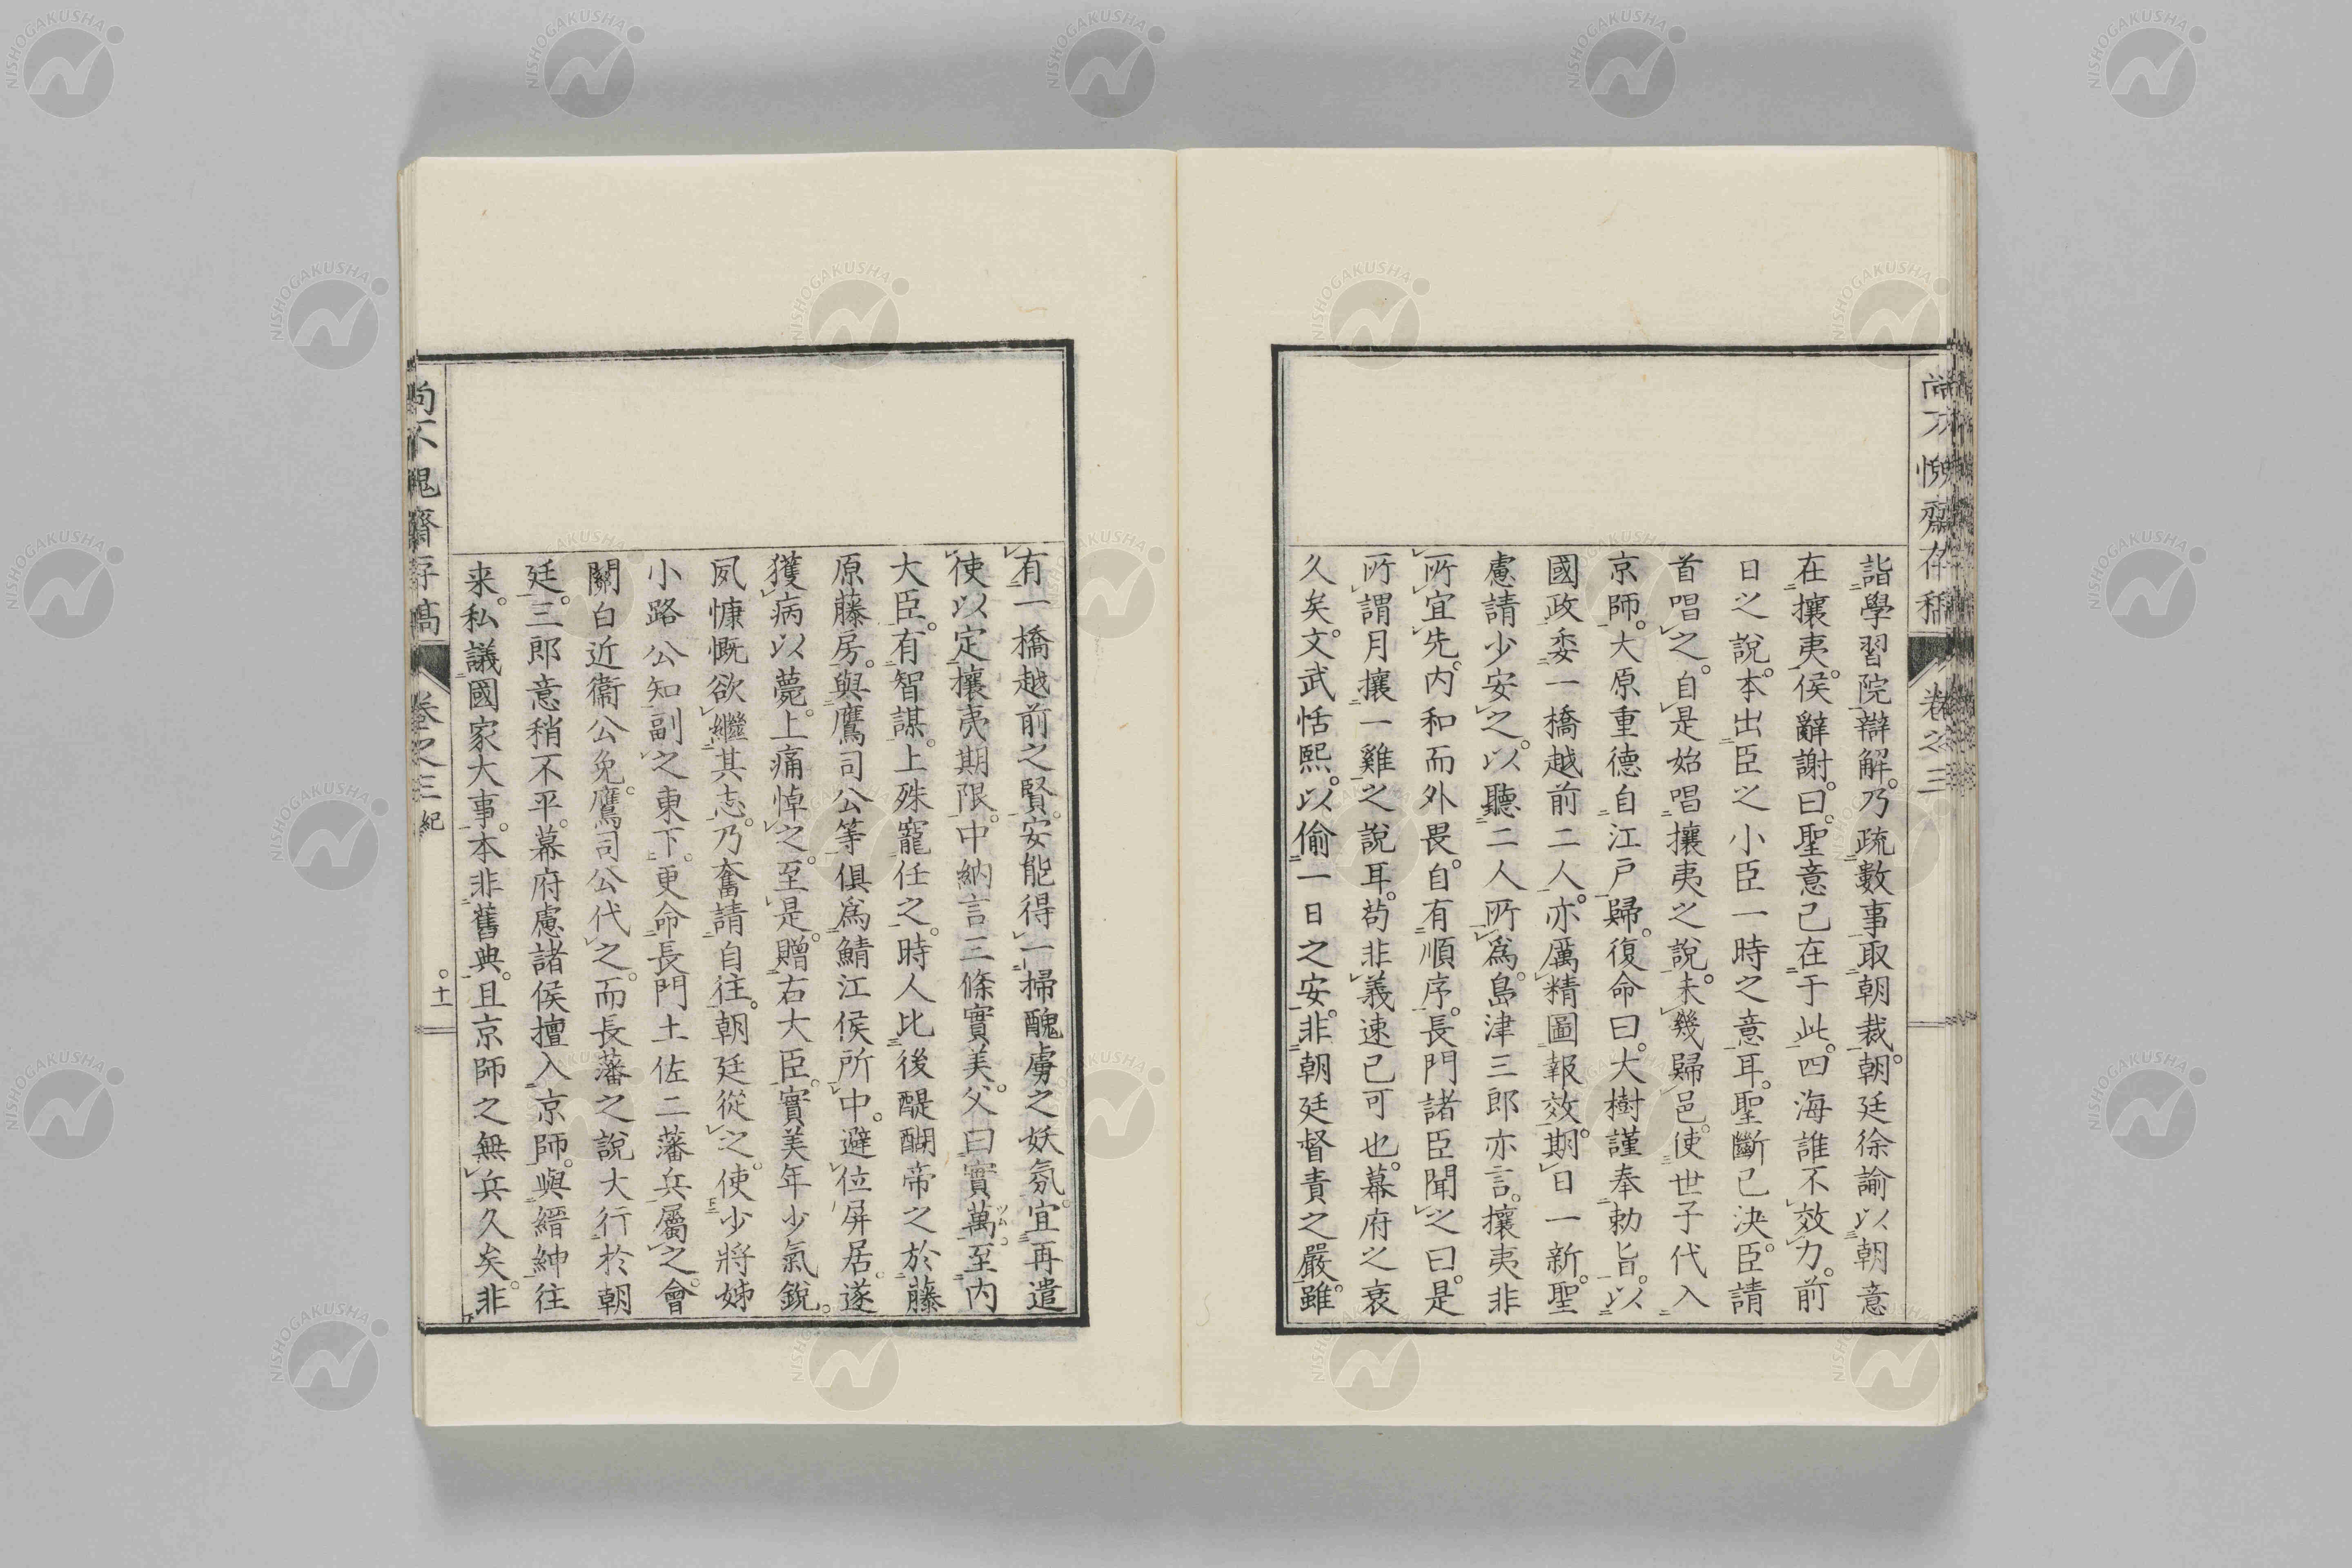 詣學習院。辯解。乃疏數事取朝裁。朝廷徐諭以朝意
在攘夷。侯辭謝。曰。聖意已在于此。四海誰不效力。前
日之說。本出臣之小臣一時之意耳。聖斷已決。臣請
首唱之。自是始唱攘夷之說。未幾歸邑。使世子代入
京師。大原重德自江戶歸。復命曰。大樹謹奉勅旨。以
國政委一橋越前二人。亦厲精圖報效。期日一新。聖
慮請少安之。以聽二人所爲。島津三郎亦言。攘夷非
所宜先。內和而外畏。自有順序。長門諸臣聞之曰。是
所謂月攘一雞之說耳。苟非義速已可也。幕府之衰
久矣。文武恬熙。以偷一日之安。非朝廷督責之嚴。雖
有一橋越前之賢。安能得一掃醜虜之妖氛。宜再遣
使以定攘夷期限。中納言三條實美。父曰實萬。至內
大臣。有智謀。上殊寵任之。時人比後醍醐帝之於藤
原藤房。與鷹司公等俱爲鯖江侯所中。避位屏居。遂
獲病以薨。上痛悼之。至是。贈右大臣。實美年少氣銳。
夙慷慨欲繼其志。乃奮請自往。朝廷從之。使少將姊
小路公知副之東下。更命長門土佐二藩兵屬之。會
關白近衞公免。鷹司公代之。而長藩之說大行於朝
廷。三郎意稍不平。幕府慮諸侯擅入京師。與縉紳往
来。私議國家大事。本非舊典。且京師之無兵久矣。非
尚不愧齋存稿 卷之三
尚不愧齋存稿 卷之三 紀 十一
NISHOGAKUSHA